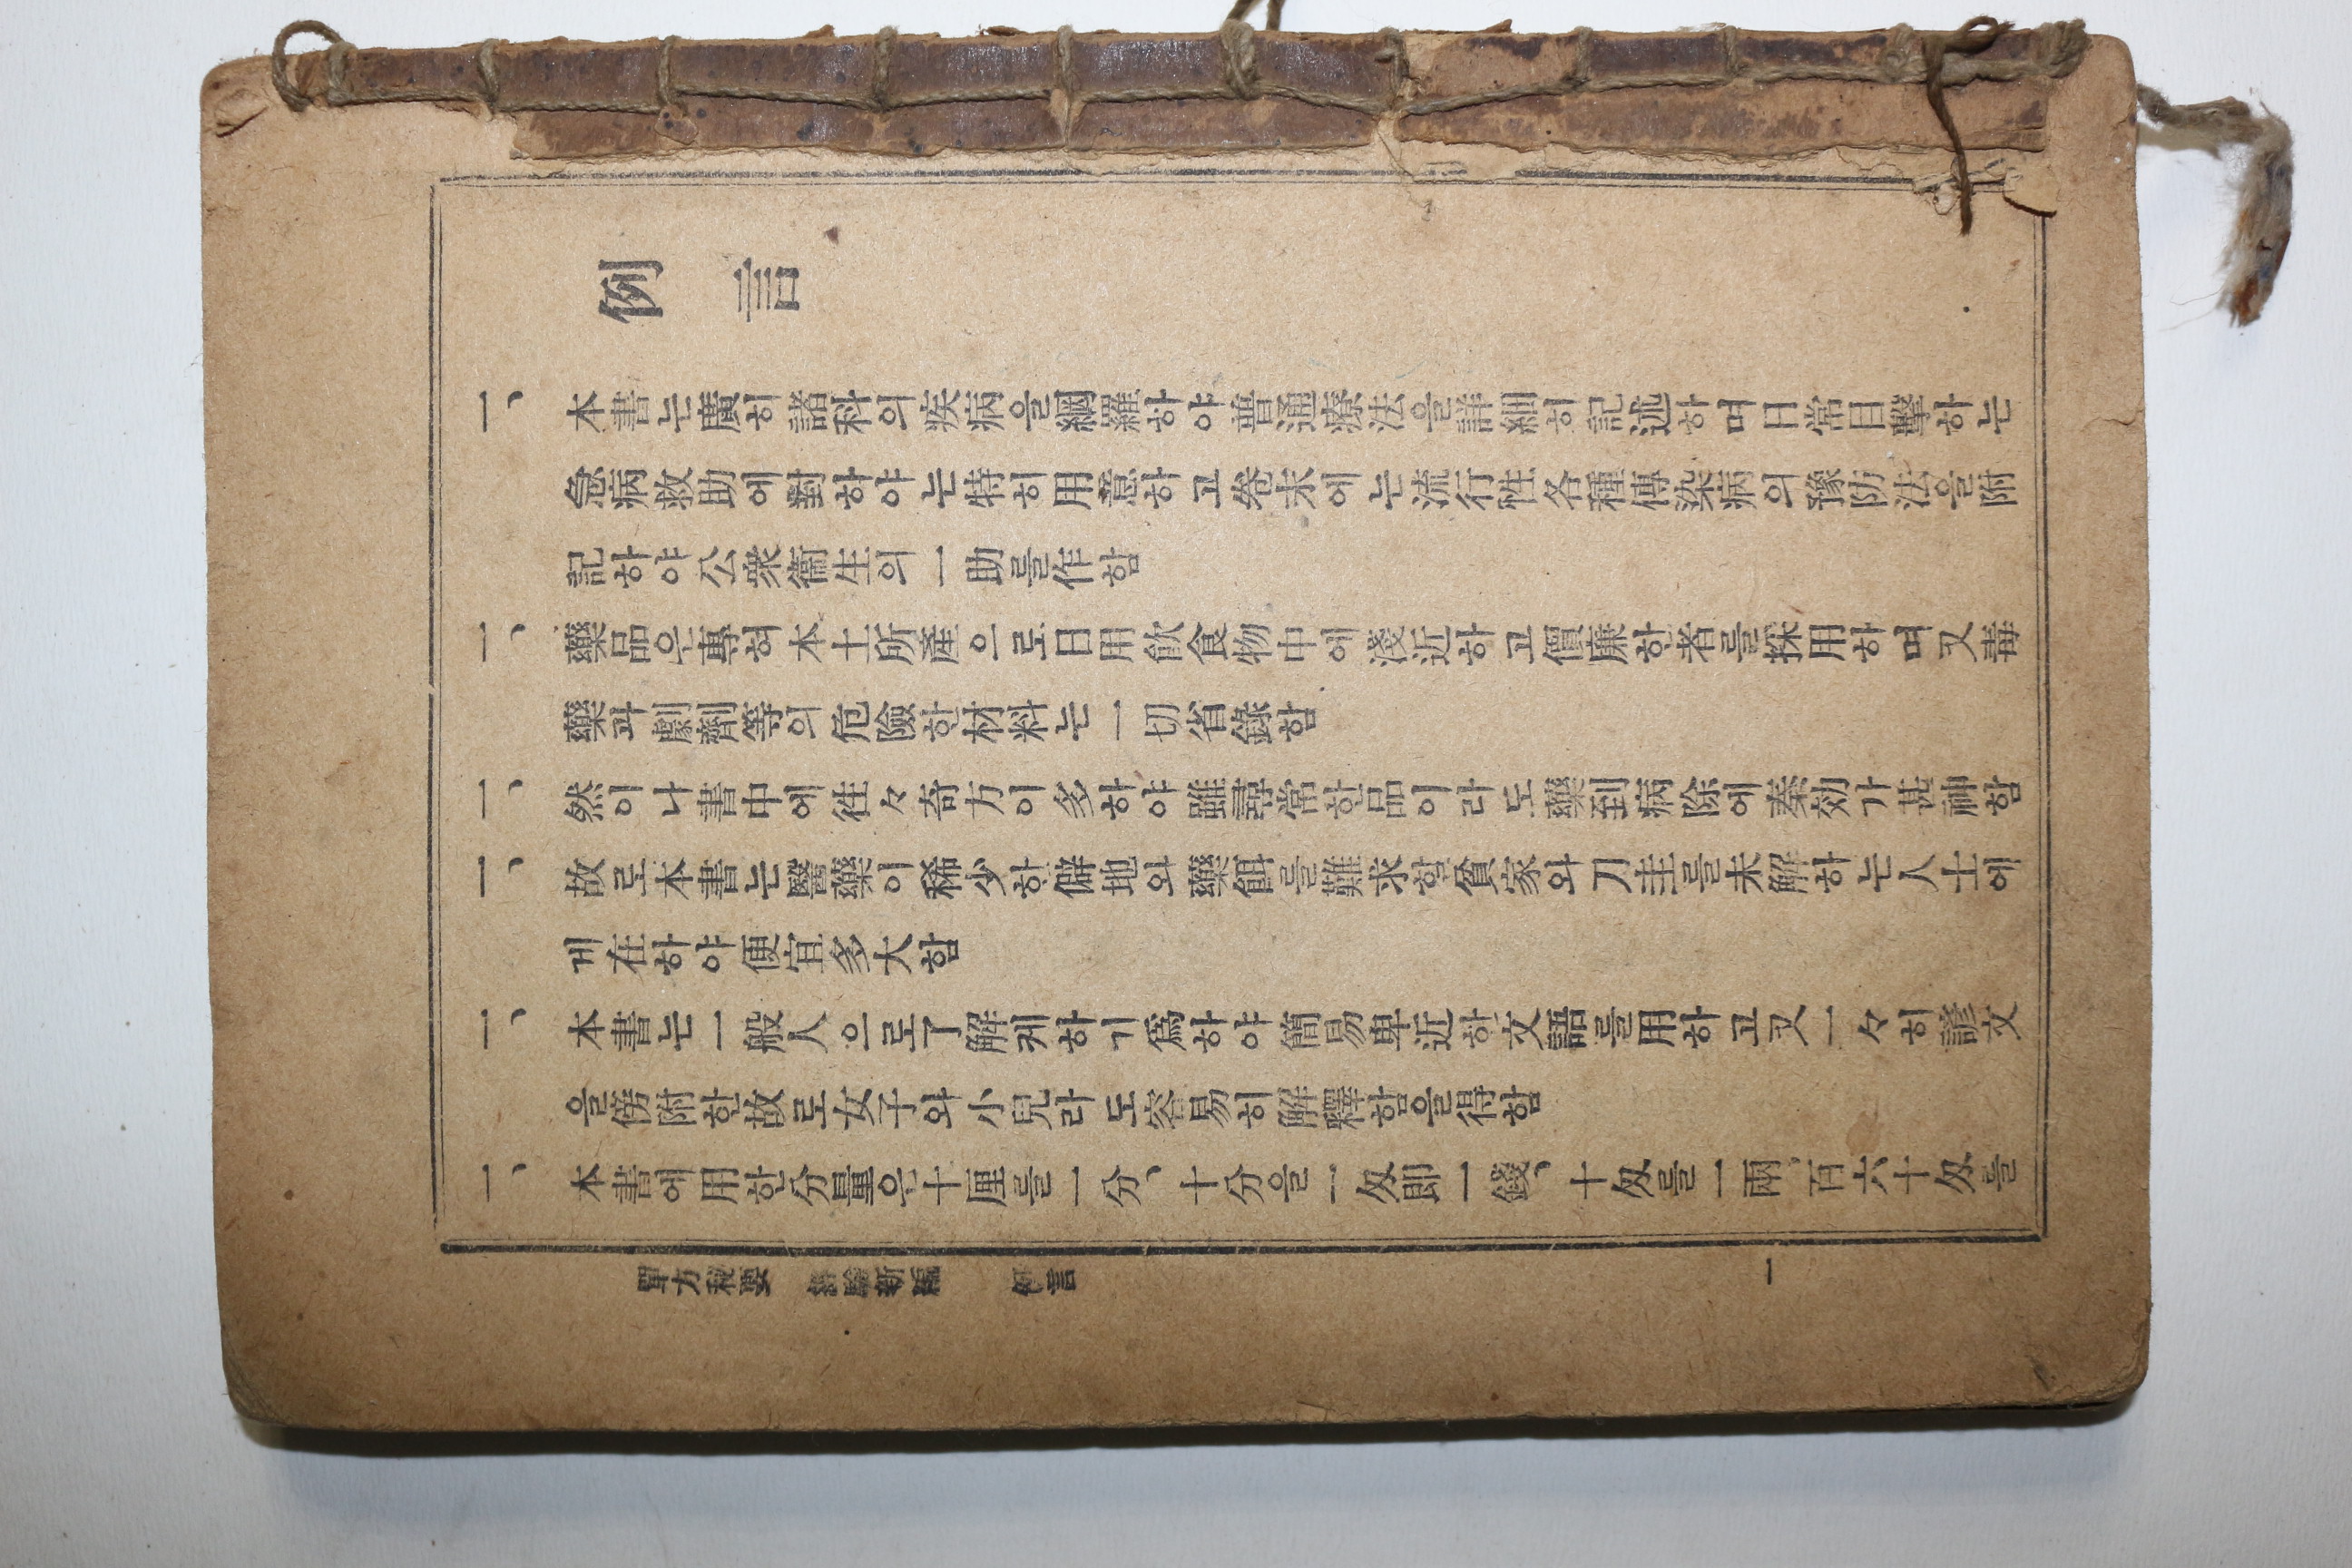 例言
一、本書는廣히諸科의疾病을網羅하야普通療法을詳細히記述하며日常目擊하는
急病救助에對하야는特히用意하고卷末에는流行性各種傳染病의豫防法을附
記하야公衆衞生의一助를作함
一、藥品은專혀本土所産으로日用飮食物中에淺近하고價廉한者를採用하며又毒
藥과劇劑等의危險한材料는一切省錄함
一、然이나書中에徃々奇方이多하야雖尋常한品이라도藥到病除에奏効가甚神함
一、故로本書는醫藥이稀少한僻地와藥餌를難求할貧家와刀圭를未解하는人士에
게在하야便宜多大함
一、本書는一般人으로了解케하기爲하야簡易卑近한文語를用하고又一々히諺文
을傍附한故로女子와小兒라도容易히解釋함을得함
一、本書에用한分量은十厘를一分、十分을一匁卽一錢、十匁를一兩、百六十匁를
單方秘要 經驗新編 例言
一